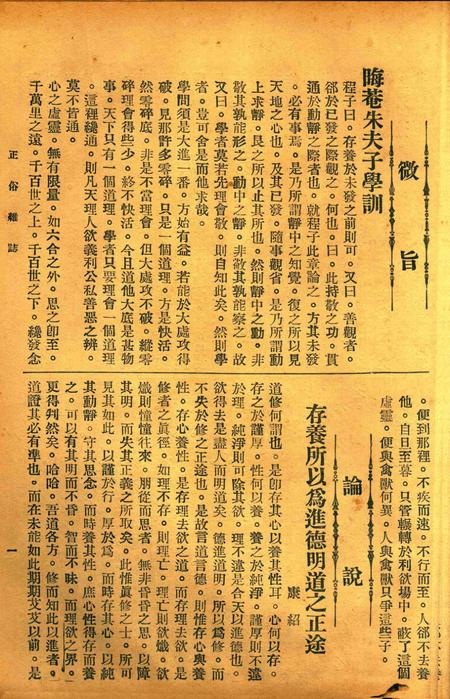 微旨
晦菴朱夫子學訓
程子曰。存養於未發之前則可。又曰。善觀者。
卻於已發之際觀之。何也。曰。此持敬之功。貫
通於動靜之際者也。就程子此章論之。方其未發
。必有事焉。是乃所謂靜中之知覺。復之所以見
天地之心也。及其已發。隨事觀省。是乃所謂動
上求靜。艮之所以止其所也。然則靜中之動。非
敬其孰能形之。動中之靜。非敬其孰能察之。故
又曰。學者莫若先理會敬。則自知此矣。然則學
者。豈可舍是而他求哉。
學問須是大進一番。方始有益。若能於大處攻得
破。見那許多零碎。只是一個道理。方是快活。
然零碎底。非是不當理會。但大處攻不破。縱零
碎理會得些少。終不快活。今且道他大底是甚物
事。天下只有一個道理。學者只要理會一個道理
。這裡纔通。則凡天理人欲義利公私善惡之辨。
莫不皆通。
心之虛靈。無有限量。如六合之外。思之卽至。
千萬里之遠。千百世之上。千百世之下。纔發念
。便到那裡。不疾而速。不行而至。人卻不去養
他。自旦至暮。只管輾轉於利欲場中。蔽了這個
虛靈。便與禽獸何異。人與禽獸只爭這些子。
論說
存養所以為進德明道之正途
康紹
道修何謂也。是卽存其心以養其性耳。心何以存。
存之於謹厚。性何以養。養之於純淨。謹厚則不違
於理。純淨則可除其欲。理不違是合天以進德也。
欲得去是盡人而明道矣。德進道明。所以爲修。而
不失於修之正途也。是故言道言德。則惟存心與養
性。存心養性。是存理去欲之道。而存理去欲。是
修者之眞徑。如理不存。則理亡。理亡則欲熾。欲
熾則憧憧往來。朋從而思者。無非昏昏之思。以障
其明。而失其正義之所取矣。此惟眞修之士。所可
見其如此。以謹於行。厚於爲。而時存其心。以純
其動靜。守其思念。而時養其性。庶心性得存而養
之。可以有其明而不昏。智而不昧。而理欲之界。
更得判然矣。哈哈。吾道各方。修而知此以進者。
道證其必有準也。而在未能如此期期艾艾以前。是
正俗雜誌
一